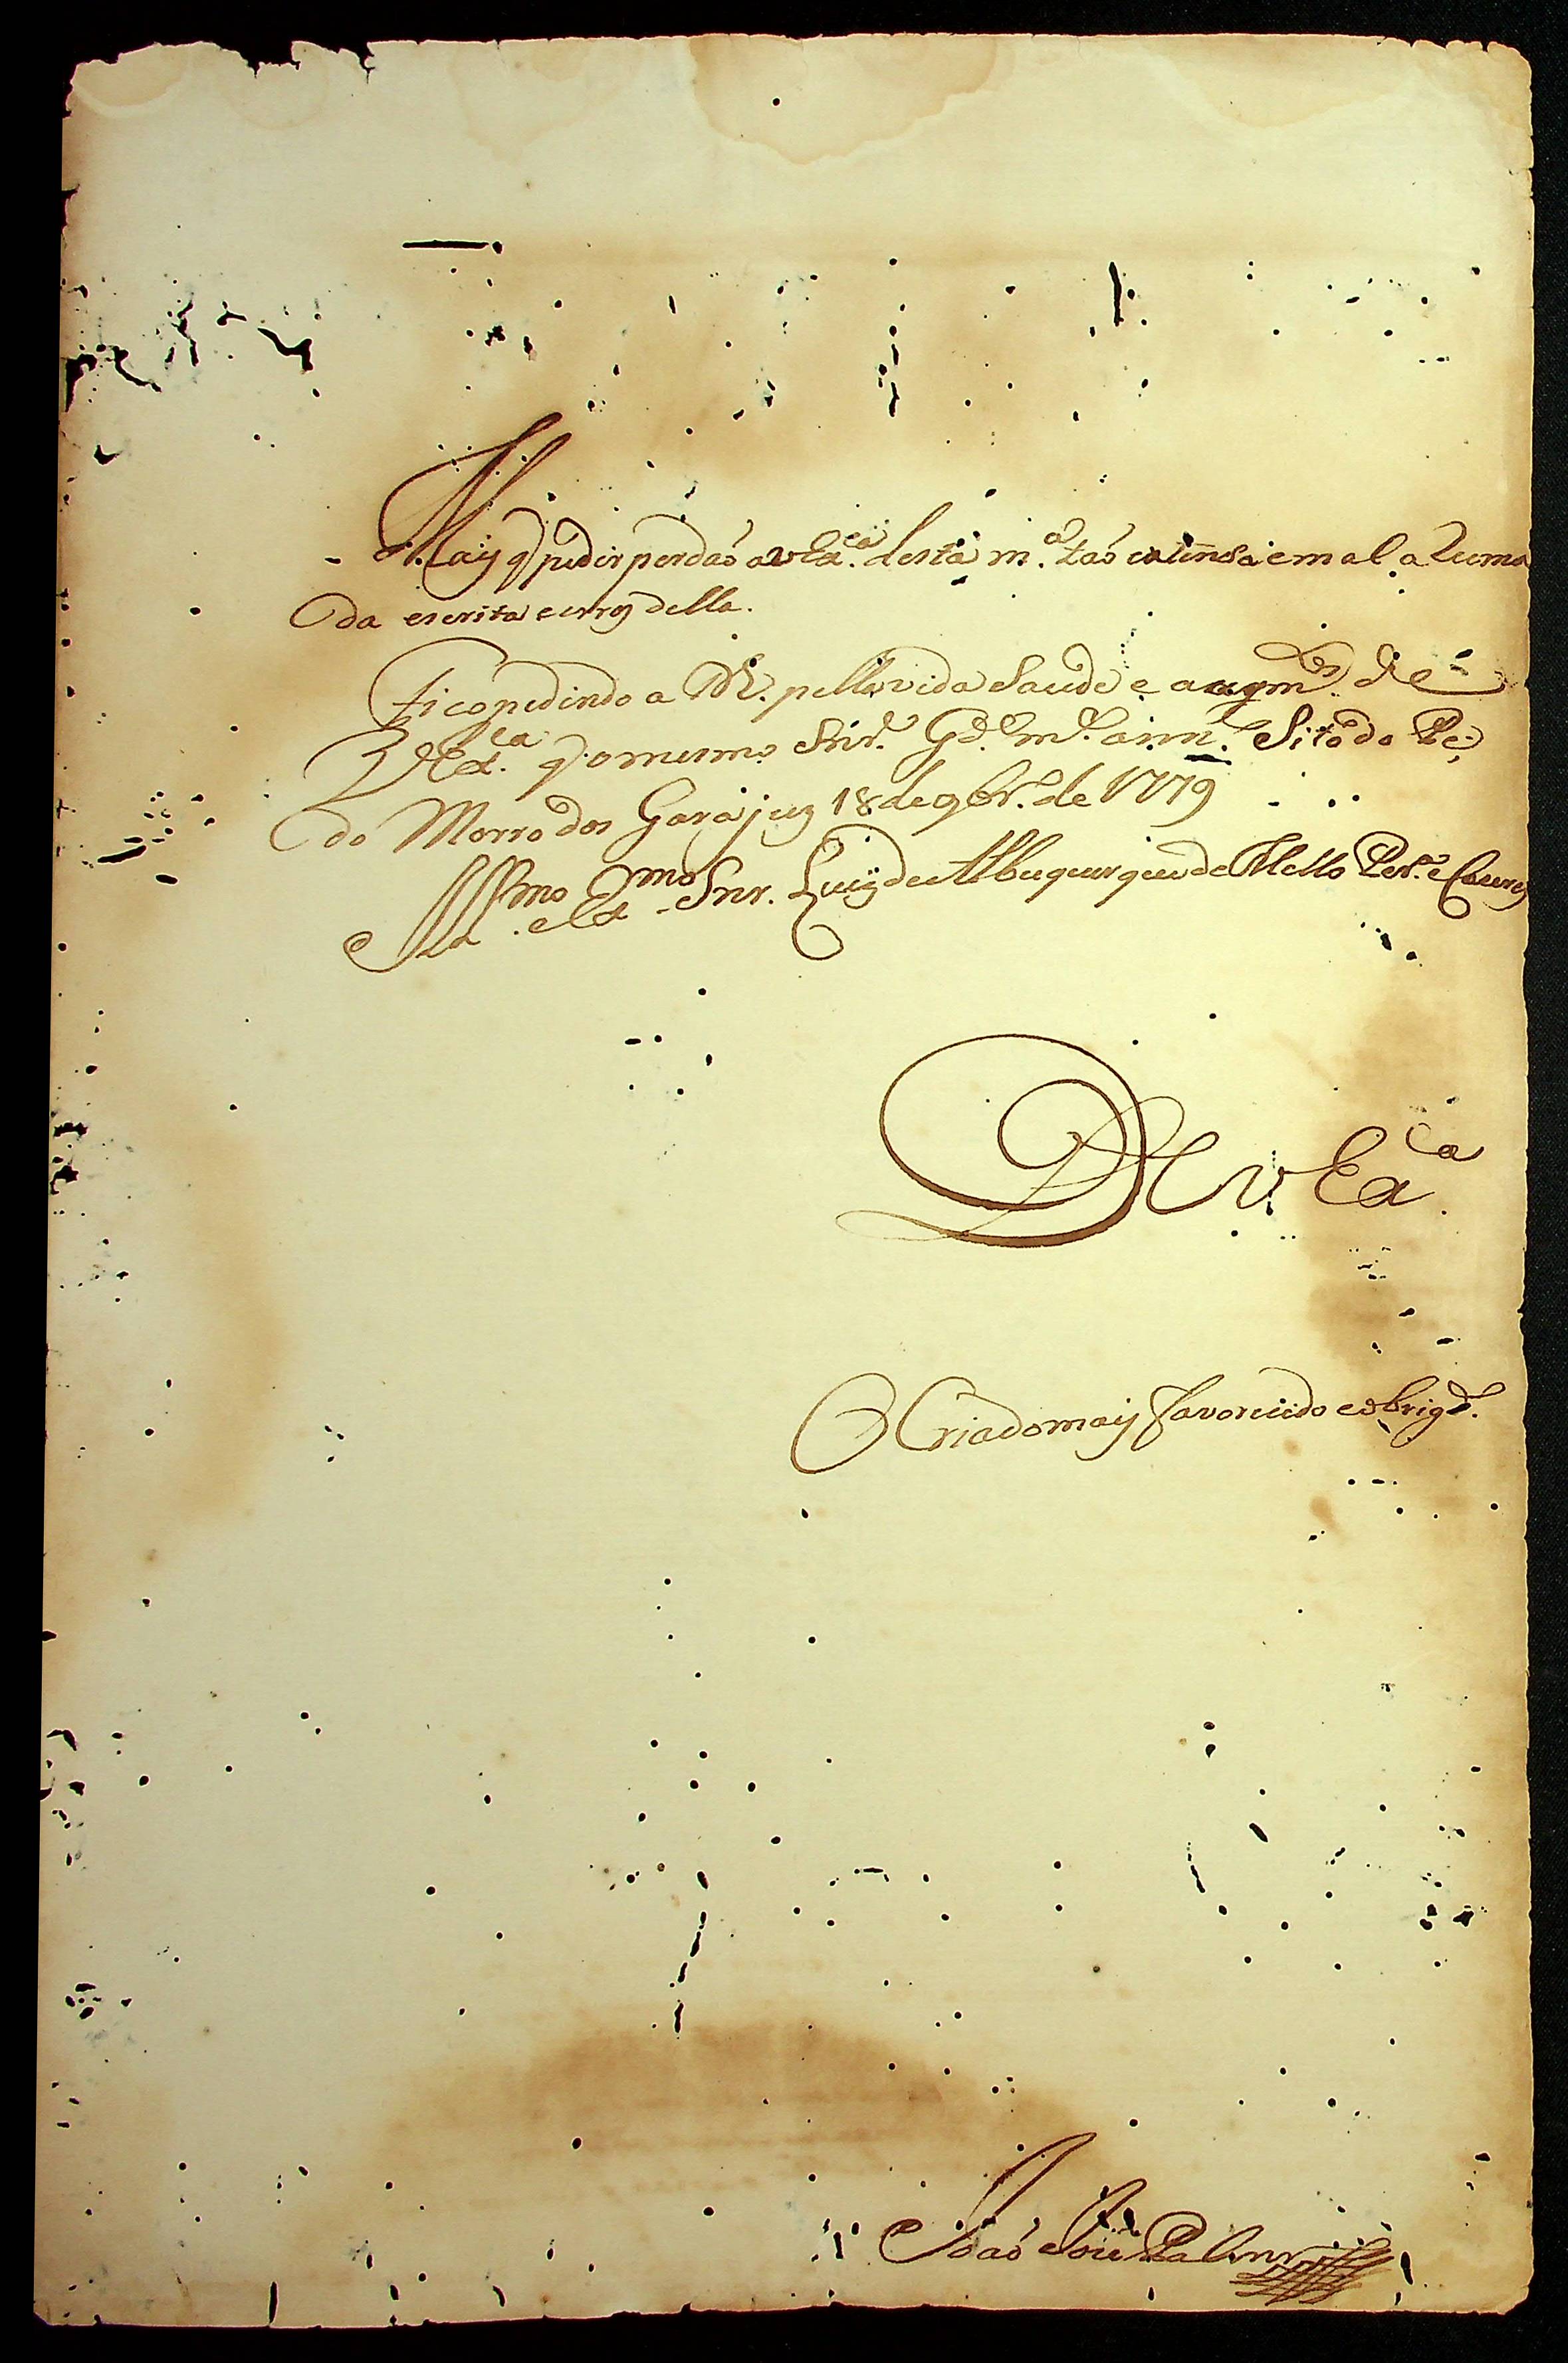 May q̃ pedir perdaõ a v Exª.ᶜⁱᵃ desta m.ª taõ extença e mal a Ruma
da escrita e erros della.
fico pedindo a Ds. pella vida Saude e augm.ᵗᵒˢ de
V Ex.ᶜⁱᵃ q. o mesmo Snr.ᵒʳ Gd.ᵉ m.ˢ ann.ˢ Sitio do Pé
do Morro dos Garajus 18 de 9br.º de 1779
Ill.ᵐᵒ e Ex.ᵐᵒ Snr. Luiz de Albuquerque de Mello Per.ª e Caures
De V Ex.ᶜⁱᵃ
O Criado mais favorecido e obrigd.º
Joaõ Joze